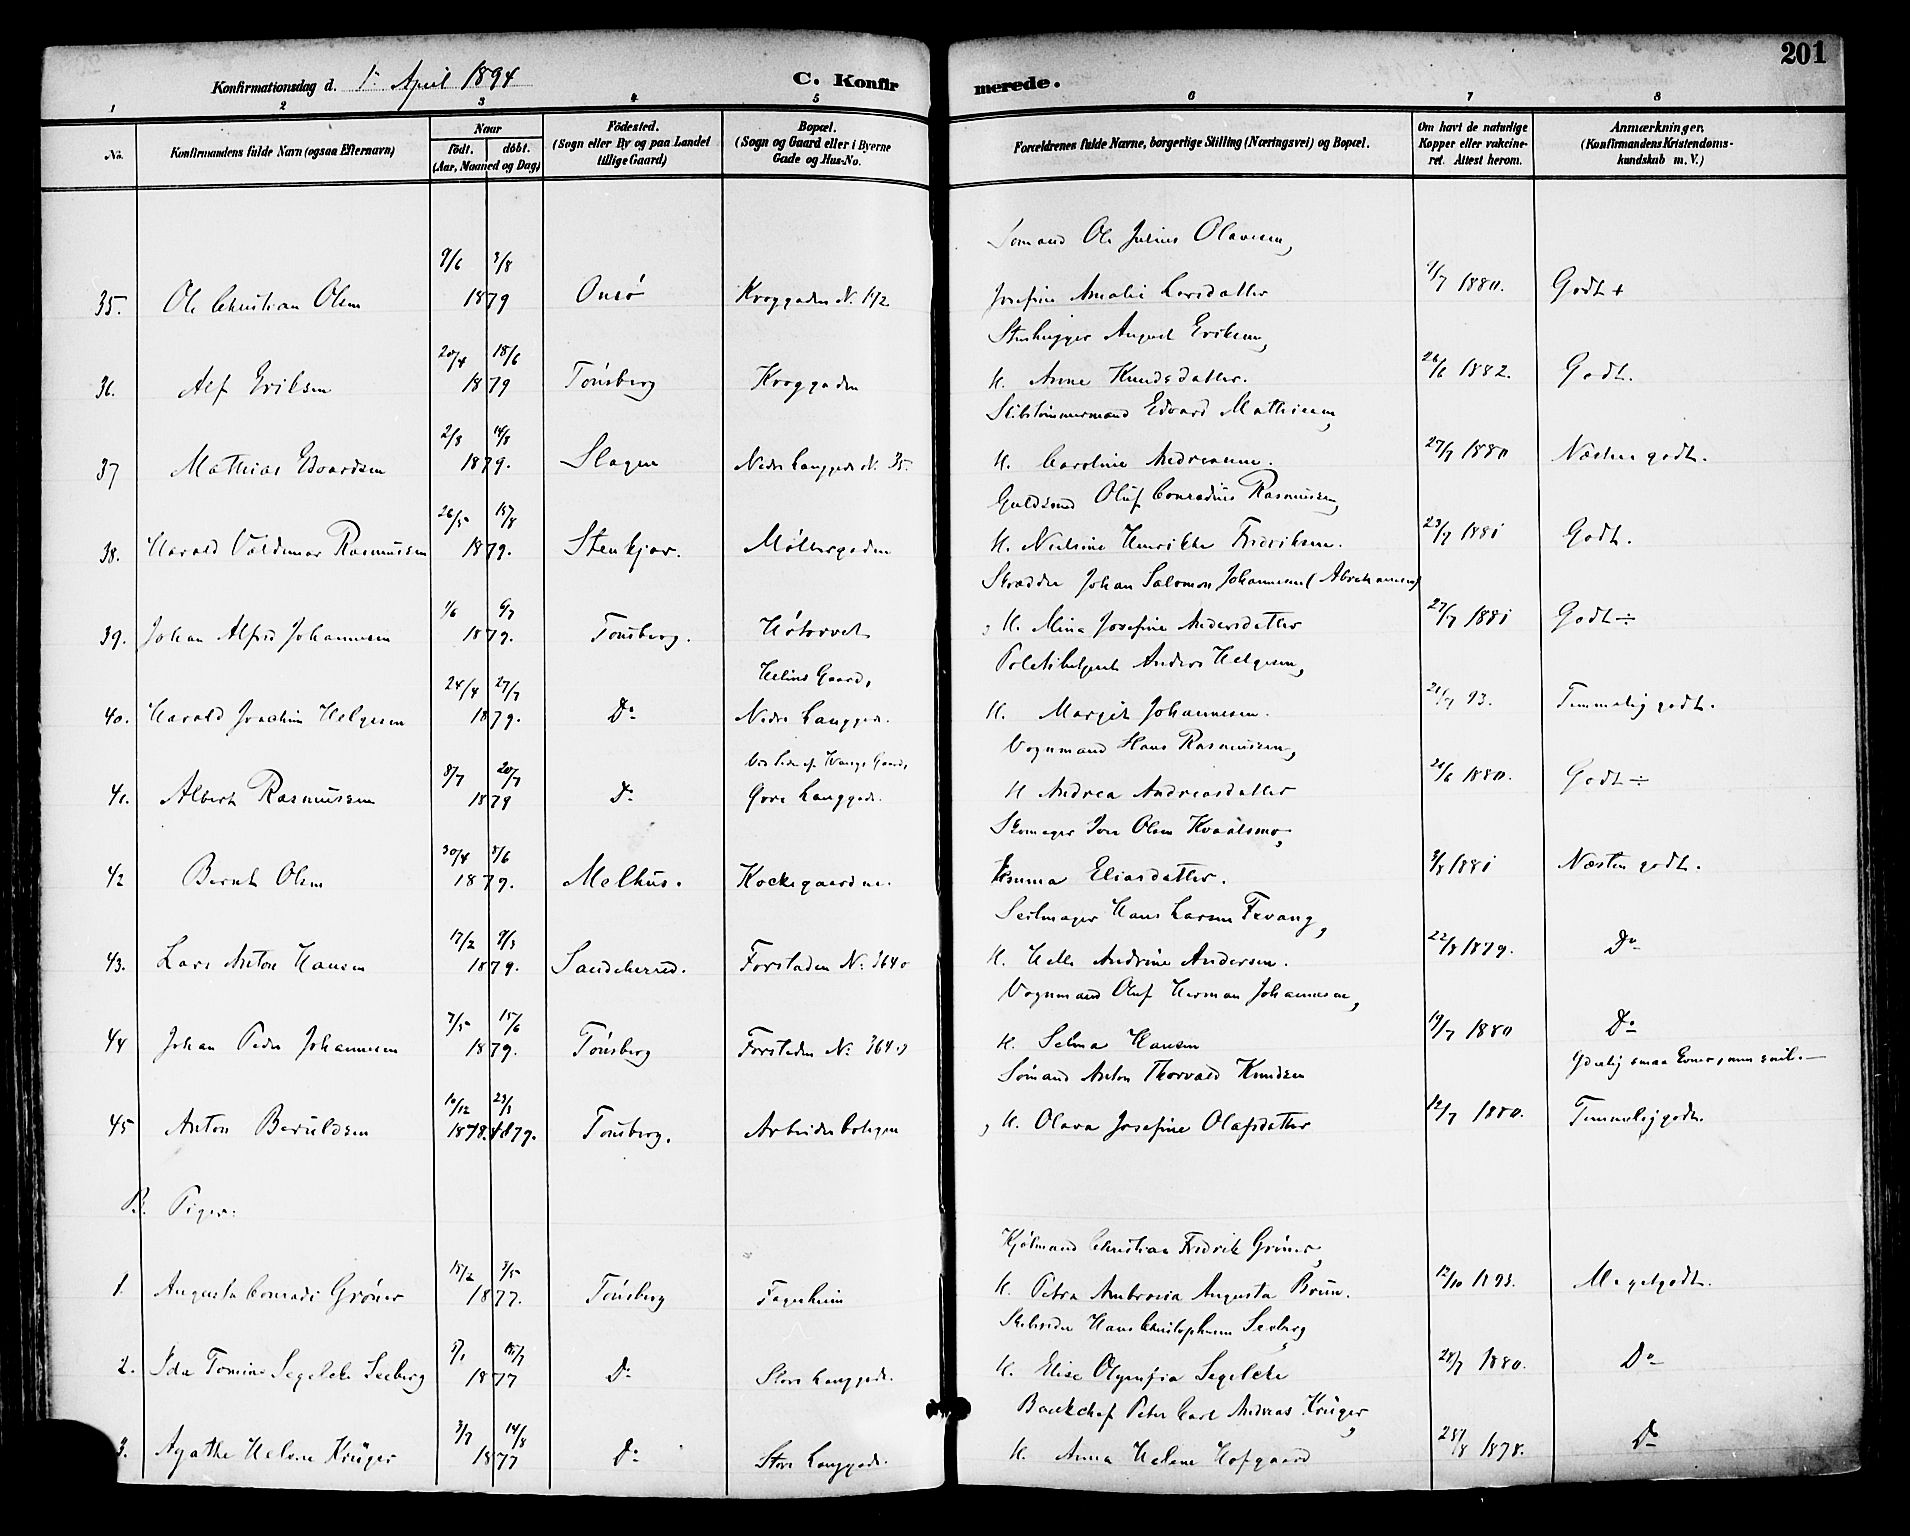 201
Konfirmationsdag d. 1. April 1894
C. Konfirmerede.
1 2 3 4 5 6 7 8
No.
Konfirmandens fulde Navn (ogsaa Efternavn)
Naar
födt. döbt.
(Aar, Maaned og Dag)
Födested.
(Sogn eller By og paa Landet
tillige Gaard)
Bopæl.
(Sogn og Gaard eller i Byerne
Gade og Hus-No.
Forældrenes fulde Navne, borgerlige Stilling (Næringsvei) og Bopæl.
Om havt de naturlige
Kopper eller vakcine-
ret. Attest herom.
Anmærkninger.
(Konfirmandens Kristendoms-
kundskab m. V.)
Sømand Ole Julius Olavesen,
9/6 3/8
35. Ole Christian Olsen 1879 Onsö Kroggaden N. 192 Josefine Amalie Larsdatter 9/7 1880. Godt +
Stenhugger August Eriksen,
20/4 18/6
36. Alf Eriksen 1879 Tönsberg Kroggaden H. Anne Knudsdatter. 26/6 1882. Godt.
Skibstömmermand Edvard Mathisen,
2/3 14/8
37 Mathias Edvardsen 1879. Slagen Nedre Langgade N. 35. H. Caroline Andreasen. 27/7 1880 Næsten godt.
Guldsmed Oluf Conradius Rasmussen,
26/5 15/8
38. Harald Valdemar Rasmussen 1879. Stenkjær. Möllergaden H. Nielsine Henrikke Fredriksen. 23/7 1881 Godt.
Skrædder Johan Salomon Johannesen (Abrahamsen)
1/6 6/7
39. Johan Alfred Johannesen 1879. Tönsberg. Høtorvet , H. Mina Josefine Andersdatter 27/7 1881 Godt ÷
Politibetjent Anders Helgesen,
24/4 27/7 Helius Gaard,
40. Harald Joachim Helgesen 1879. Do Nedre Langgade. H. Margit Johannesen. 21/7 93. Temmelig godt.
Vognmand Hans Rasmussen,
8/7 20/7 Ved Siden af Wangs Gaard,
41. Albert Rasmussen 1879 Do Övre Langgade. H Andrea Andreasdatter 26/6 1880. Godt ÷
Skomager Iver Olsen Kvaalsmo,
30/4 8/6
42 Bernt Olsen 1879. Melhus. Kockegaardene. Emma Eliasdatter. 3/8 1881 Næsten godt.
Seilmager Hans Larsen Fevang,
17/2 9/3
43. Lars Anton Hansen 1879. Sandeherred. Forstaden No. 364 o H. Helle Andrine Andersen. 22/8 1879. Do
Vognmand Oluf Herman Johannesen,
7/5 15/6
44 Johan Peder Johannesen 1879. Tönsberg Forstaden No. 364 H. Selma Hansen 19/7 1880 Do
Sömand Anton Thorvald Knudsen Yderlig smaa Evner, men snil. —
10/12 23/3
45 Anton Beruldsen 1878. 1879. Tönsberg. Arbeiderboligen , H. Olava Josefine Olafsdatter 12/7 1880. Temmelig godt.
B. Piger.
Kjøbmand Christian Fredrik Gröner,
15/2 3/5
1. Augusta Conradi Gröner 1877. Tönsberg Fagerheim H. Petra Ambrosia Augusta Brun. 12/10 1893. Meget godt.
Skibsreder Hans Christophersen Seeberg,
5/1 15/7
2. Ida Tomine Segelcke Seeberg 1877 Do Store Langgade. H. Elise Olympia Segelcke 28/7 1880. Do
Bankchef Peter Carl Andreas Krüger,
3/7 14/8
3. Agathe Helene Krüger 1877 Do Store Langgade. H. Anna Helene Hofgaard 28/8 1878. Do